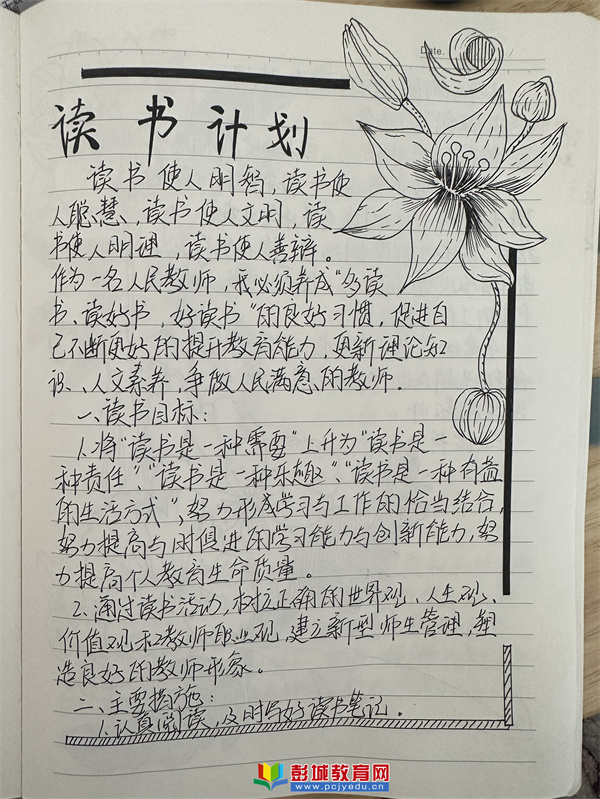 Date.
读书计划
读书使人明智，读书使
人聪慧，读书使人文明，读
书使人明理，读书使人善辩。
作为一名人民教师，我必须养成“多读
书、读好书，好读书”的良好习惯，促进自
己不断更好的提升教育能力，更新理论知
识、人文素养，争做人民满意的教师。
一、读书目标：
1.将“读书是一种需要”上升为“读书是一
种责任”、“读书是一种乐趣”、“读书是一种有益
的生活方式”，努力形成学习与工作的恰当结合，
努力提高与时俱进的学习能力与创新能力，努
力提高个人教育生命质量。
2.通过读书活动，树立正确的世界观、人生观、
价值观和教师职业观，建立新型师生管理，塑
造良好的教师形象。
二、主要措施：
1.认真阅读，及时写好读书笔记。
彭城教育网
www.pcjyedu.cn